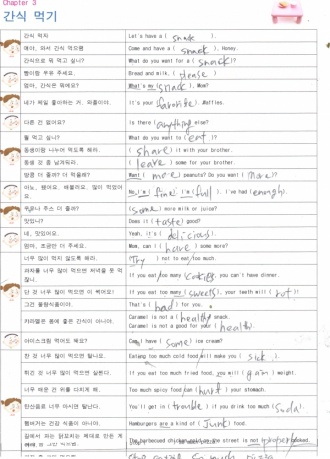 Chapter 3
간식 먹기
간식 먹자 Let's have a ( snack ).
얘야, 와서 간식 먹으렴 Come and have a ( snack ), Honey.
간식으로 뭐 먹고 싶니? What do you want for a ( snack )?
빵이랑 우유 주세요. Bread and milk, ( please )
엄마, 간식은 뭐에요? What's my ( snack ), Mom?
네가 제일 좋아하는 거, 와플이야. It's your ( favorite ). Waffles.
다른 건 없어요? Is there ( anything else?
뭘 먹고 싶니? What do you want to ( eat )?
동생이랑 나누어 먹도록 해라. ( share ) it with your brother.
동생 것 좀 남겨둬라. ( leave ) some for your brother.
땅콩 더 줄까? 더 먹을래? Want ( more peanuts? Do you want ( more )?
아뇨, 됐어요. 배불러요. 많이 먹었어요. No, I'm ( fine I'm ( full ). I've had ( enough ).
우유나 주스 더 줄까? ( some ) more milk or juice?
맛있니? Does it ( taste ) good?
네, 맛있어요. Yeah, it's ( delicious ).
엄마, 조금만 더 주세요. Mom, can I ( have ) some more?
너무 많이 먹지 않도록 해라. Try ) not to eat too much.
과자를 너무 많이 먹으면 저녁을 못 먹잖니. If you eat too many ( cookies, you can't have dinner.
단 것 너무 많이 먹으면 이 썩어요! If you eat too many ( sweets ), your teeth will ( rot )!
그건 불량식품이야. That's ( bad ) for you.
카라멜은 몸에 좋은 간식이 아니야. Caramel is not a ( healthy snack.
Caramel is not a good for your ( health ).
아이스크림 먹어도 돼요? Can I have ( some ) ice cream?
찬 것 너무 많이 먹으면 탈나요. Eating too much cold food will make you ( sick ).
튀긴 것 너무 많이 먹으면 살찐다. If you eat too much fried food, you will ( gain ) weight.
너무 매운 건 위를 다치게 해. Too much spicy food can ( hurt ) your stomach.
탄산음료 너무 마시면 탈난다. You'll get in ( trouble ) if you drink too much ( soda ).
햄버거는 건강 식품이 아니야. Hamburgers are a kind of ( Junk ) food.